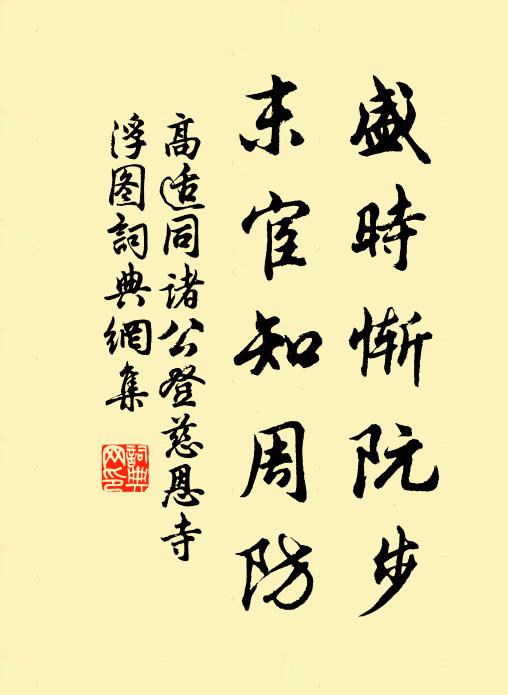 盛時慚阮步
末宦知周防
高适同諸公登慈恩寺
浮图詞典網集
詞典
网印